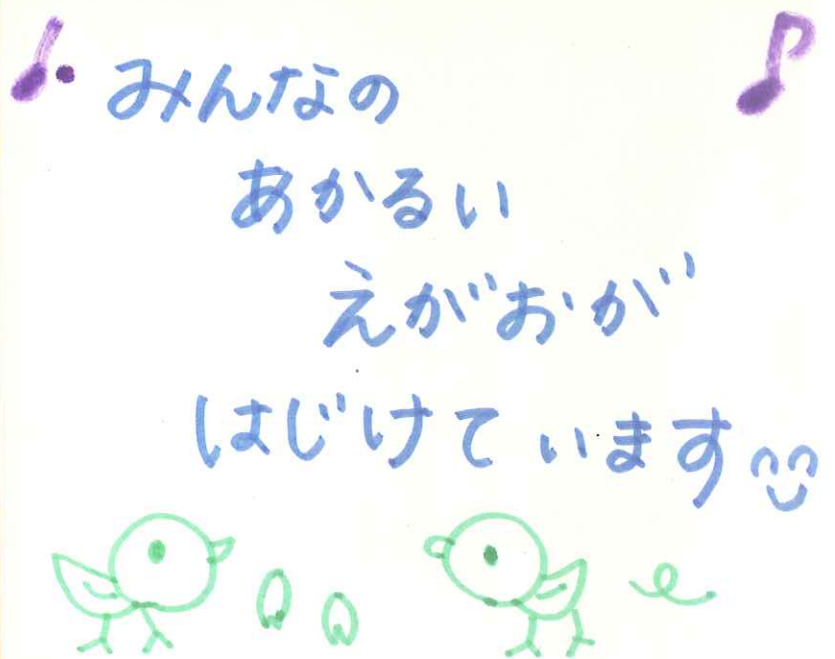 みんなの
あかるい
えがおが
はじけています